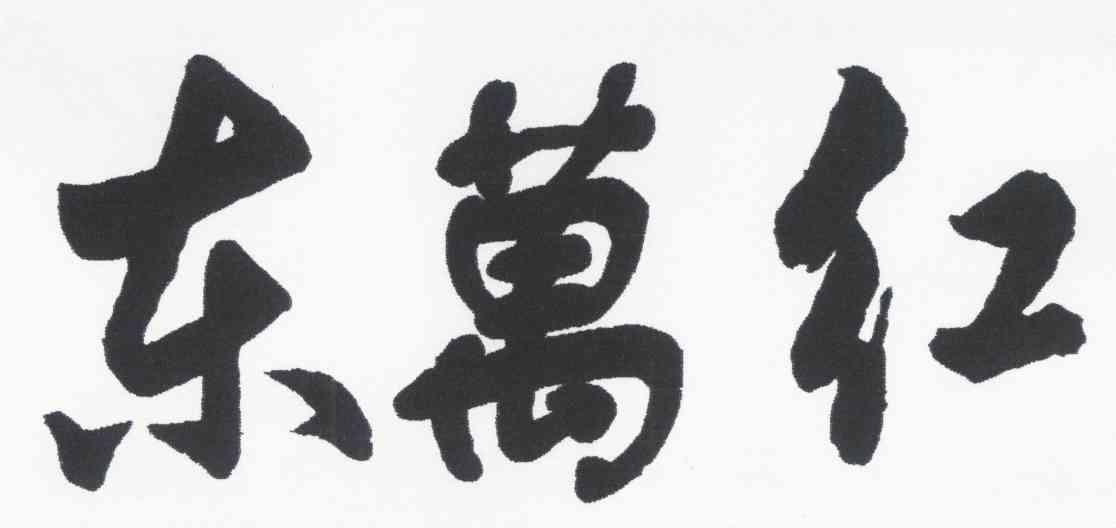 东萬红